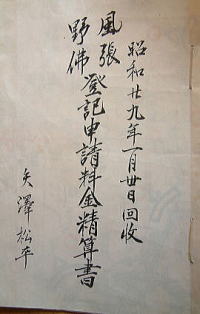 昭和廿九年一月卅日回收
風張
野佛
登記申請料金精算書
矢澤松平